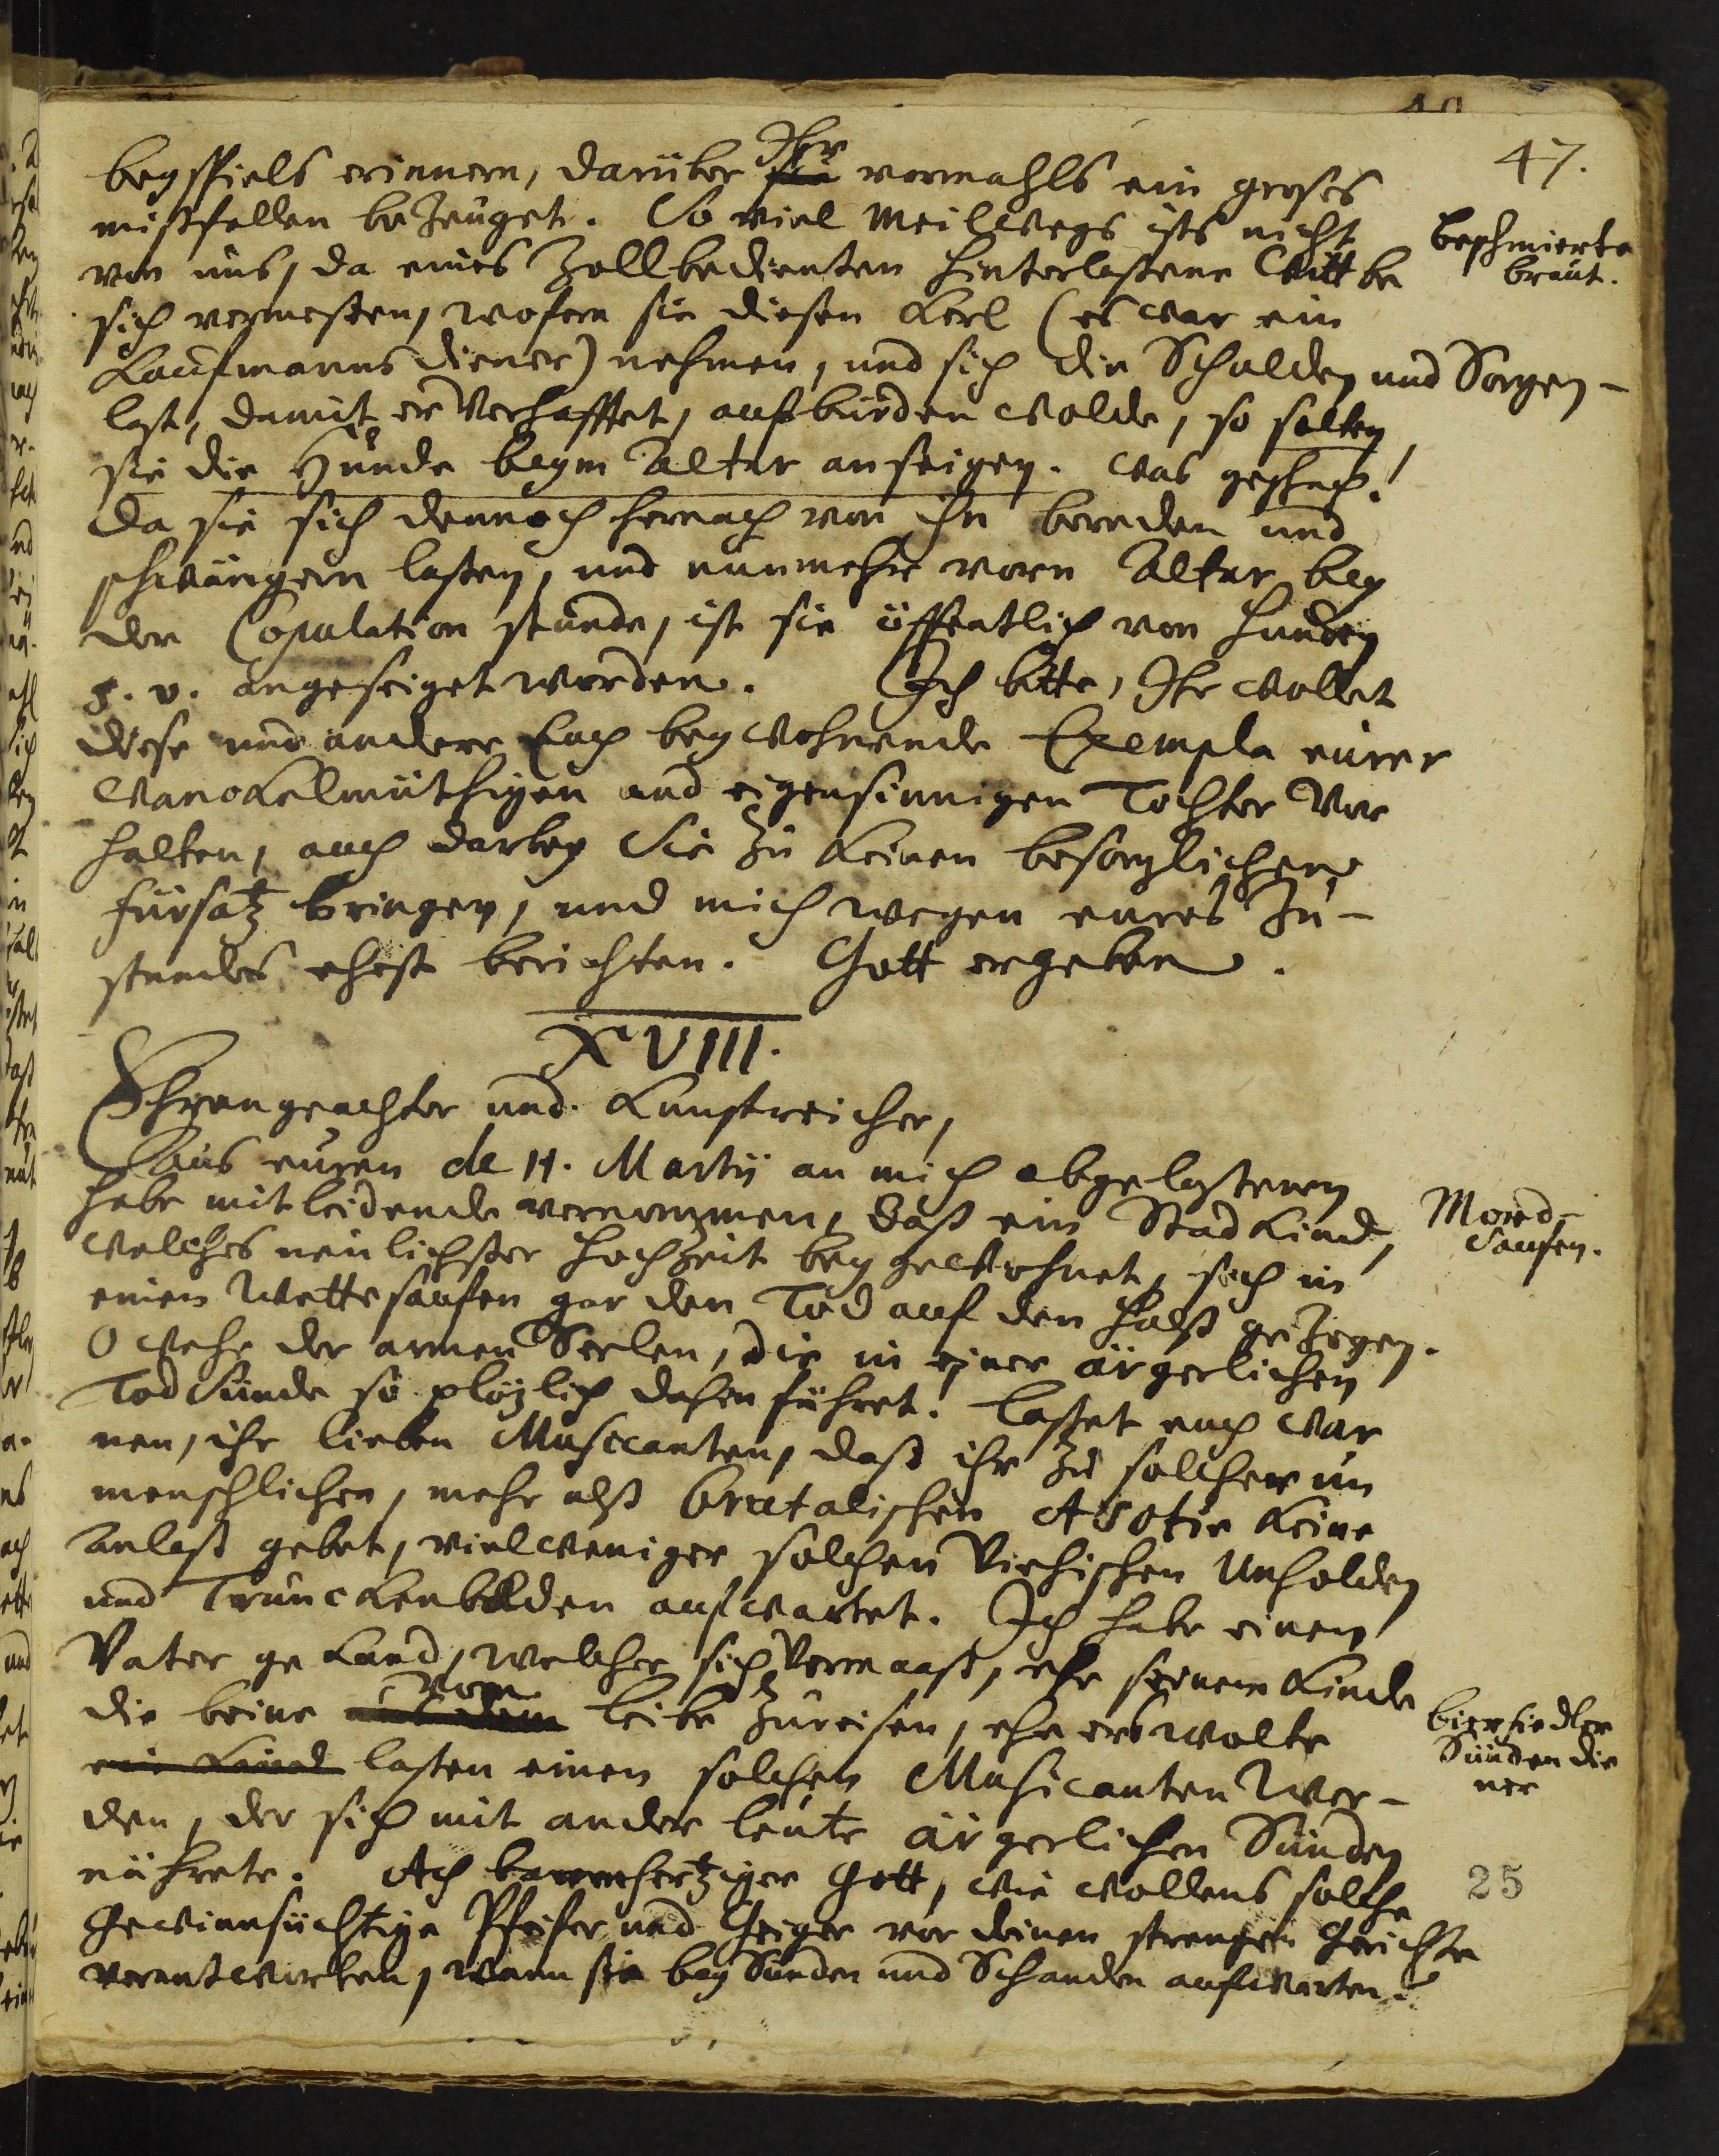 47.
beyspiels erinnern, darüber Ihr sie vormahls ein groses
mißfallen bezeuget. So viel Meilwegs ists nicht
von uns, da eines Zollbedienten hinterlaßene Wittbe
beschmierte
braut.
sich vermeßen, wofern sie diesen Kerl (es war ein
Kaufmanns diener) nehmen, und sich die Schulden und Sorgen-
last, damit er verhafftet, aufbürden wolde, so solten
sie die Hunde beym Altar anseigen. Was geschach!
da sie sich dennoch hernach von ihn bereden und
schwängern laßen, und nunmehr vorn Altar bey
der Copulation stunde, ist sie öffentlich von hunden
s. v. angeseiget worden. Ich bitte, Ihr wollet
diese und andere Euch beywohnende Exempla eurer
wanckelmüthigen und eigensinnigen Tochter vor
halten, auch darbey Sie zu keinen besorglichen
fürsatz bringen, und mich wegen eures Zu-
standes ehest berichten. Gott ergeben.
XVIII.
Ehrengeachter und Kunstreicher,
Aus euren de 11. Martii an mich abgelaßenen
habe mitleidende vernommen, daß ein Stadkind,
Mord-
saufen.
welches neulichster hochzeit beygewohnet, sich in
einen Wettesaufen gar den Tod auf den halß gezogen.
O wehe der armen Seelen, die in einer ärgerlichen
Todsünde so plözlich dahin führet! Laßet euch war
nen, ihr lieben Musicanten, daß ihr zu solcher un
menschlichen, mehr alß brutalischen Asotie keine
anlaß gebet, vielweniger solchen Viehischen Unholden
und Trunckenbolden aufwartet. Ich habe einen
Vater gekand, welcher sich vermaaß, ehe seinem Kinde
die beine aus dem vom leibe zureisen, ehe ers wolte
biersiedler
Sünden die
ner
ein Kind laßen einen solchen Musicanten wer-
den, der sich mit ander leute ärgerlichen Sünden
nährete. Ach barmhertziger Gott, wie wollens solche
25
Gewinnsüchtige Pfeifer und Geiger vor deinen strengen Gerichte
verantworten, wann sie bey Sünden und Schanden aufwarten!